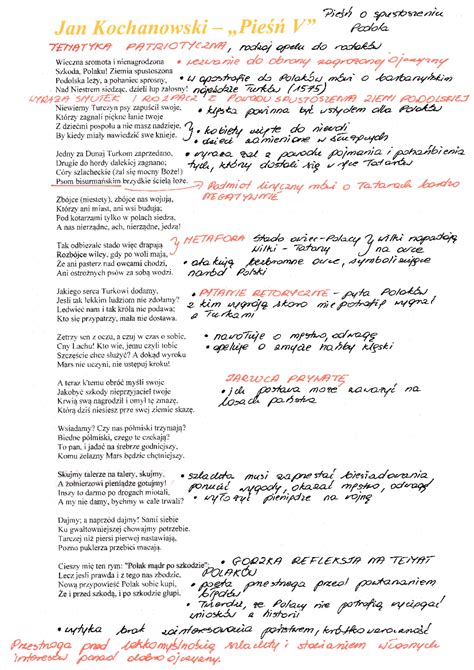 Jan Kochanowski – „Pieśń V”
Pieśń o spustoszeniu
Podola
TEMATYKA PATRIOTYCZNA, rodzaj apelu do rodaków
Wieczna sromota i nienagrodzona
Szkoda, Polaku! Ziemia spustoszona
Podolska leży, a pohaniec sprosny,
Nad Niestrem siedząc, dzieli łup żałosny!
• wezwanie do obrony zagrożonej ojczyzny
• w apostrofie do Polaków mówi o barbarzyńskim
najeździe Turków (1575)
WYRAŻA SMUTEK I ROZPACZ Z POWODU SPUSTOSZENIA ZIEMI PODOLSKIEJ
Niewierny Turczyn psy zapuścił swoje,
Którzy zagnali piękne łanie twoje
Z dziećmi pospołu a nie masz nadzieje,
By kiedy miały nawiedzić swe knieje.
• klęska powinna być wstydem dla Polaków
• kobiety wzięte do niewoli
• dzieci
Jedny za Dunaj Turkom zaprzedano,
Drugie do hordy dalekiej zagnano;
Córy szlacheckie (żal się mocny Boże!)
Psom bisurmańskim brzydkie ścielą łoże.
• wyraża żal z powodu pojmania i pohańbienia
tych, którzy dostali się w ręce Tatarów
→ Podmiot liryczny mówi o Tatarach bardzo
NEGATYWNIE
Zbójce (niestety), zbójce nas wojują,
Którzy ani miast, ani wsi budują;
Pod kotarzami tylko w polach siedzą,
A nas nierządne, ach, nierządne, jedzą!
Tak odbieżałe stado więc drapają
Rozbójce wilcy, gdy po woli mają,
Że ani pasterz nad owcami chodzi,
Ani ostrożnych psów za sobą wodzi.
METAFORA Stado owiec - Polacy
wilki - Tatarzy
wilki napadają
na owce
• atakują bezbronne owce, symbolizujące
naród Polski
Jakiego serca Turkowi dodamy,
Jesli tak lekkim ludziom nie zdołamy?
Ledwieć nam i tak króla nie podawa;
Kto się przypatrzy, mała nie dostawa.
• PYTANIE RETORYCZNE - pyta Polaków
z kim wygrają skoro nie potrafią wygrać
z Turkami
Zetrzy sen z oczu, a czuj w czas o sobie,
Cny Lachu! Kto wie, jemu czyli tobie
Szczęście chce służyć? A dokąd wyroku
Mars nie uczyni, nie ustępuj kroku!
• nawołuje o męstwo, odwagę
• apeluje o zmycie hańby klęski
A teraz k'temu obróć myśli swoje
Jakobyć szkody nieprzyjaciel twoje
Krwią swą nagrodził i omył tę zmazę,
Którą dziś niesiesz prze swej ziemie skazę.
• ich postawa może zaważyć na
losach państwa
Wsiadamy? Czy nas półmiski trzymają?
Biedne półmiski, czego te czekają?
To pan, i jadać na śrebrze godniejszy,
Komu żelazny Mars będzie chętniejszy.
Skujmy talerze na talery, skujmy,
A żołnierzowi pieniądze gotujmy!
Inszy to darmo po drogach miotali,
A my nie damy, bychmy w cale trwali?
• szlachta musi zaprzestać biesiadowania,
porzucić wygody, okazać męstwo, odwagę
• wyłożyć pieniądze na wojnę
Dajmy; a naprzód dajmy! Sami siebie
Ku gwałtowniejszej chowajmy potrzebie.
Tarczej niż piersi pierwej nastawiają,
Pozno puklerza przebici macają.
Cieszy mię ten rym: "Polak mądr po szkodzie";
Lecz jesli prawda i z tego nas zbodzie,
Nową przypowieść Polak sobie kupi,
Że i przed szkodą, i po szkodzie głupi.
• GORZKA REFLEKSJA NA TEMAT
POLAKÓW
• poeta przestrzega przed powtarzaniem
błędów
• Twierdzi, że Polacy nie potrafią wyciągać
wniosków z historii
• wytyka brak zainteresowania państwem, krótkowzroczność
Przestroga przed lekkomyślnością szlachty i stawianiem własnych
interesów ponad dobro ojczyzny.